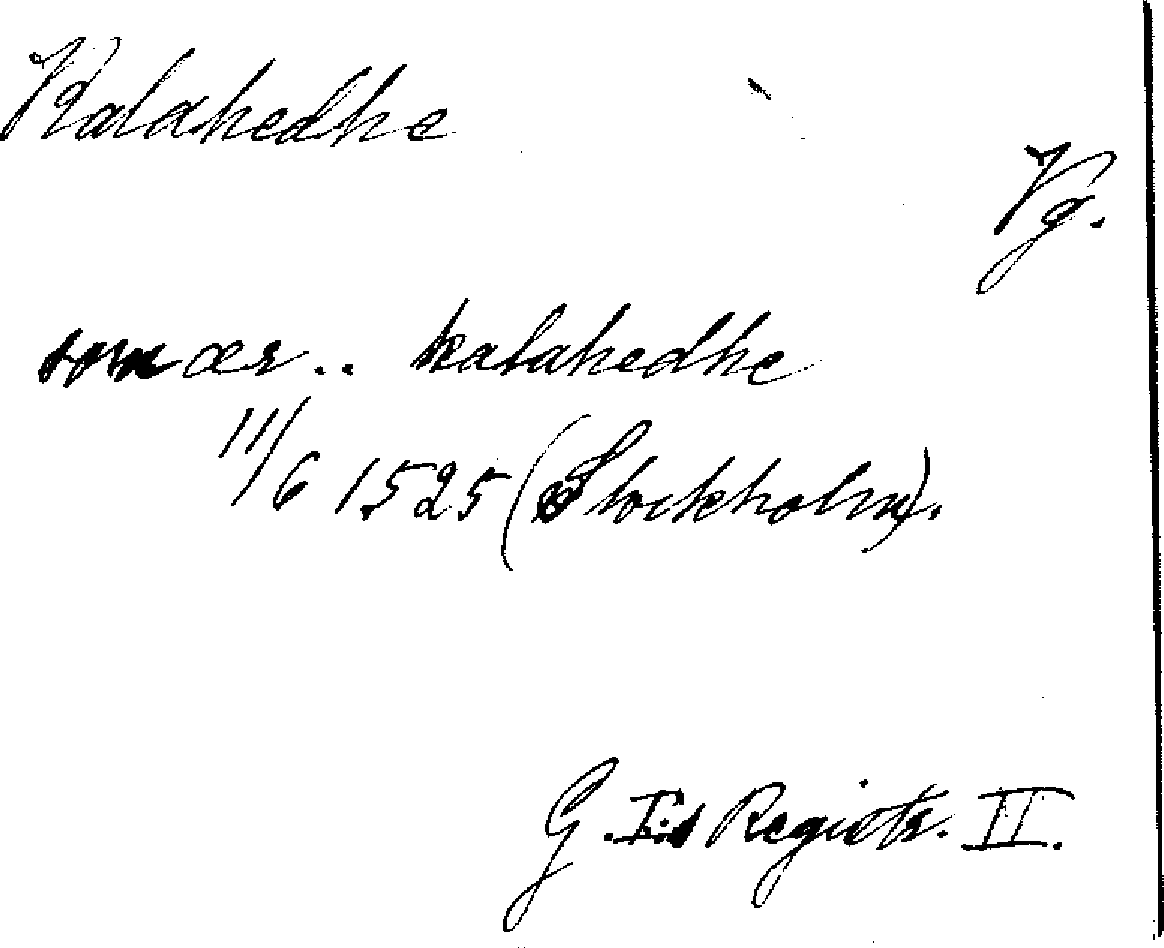 Kalahedhe
Vg.
som ær.. kalahedhe
11/6 1525 (Stockholm).
G. I:s Registr. II.